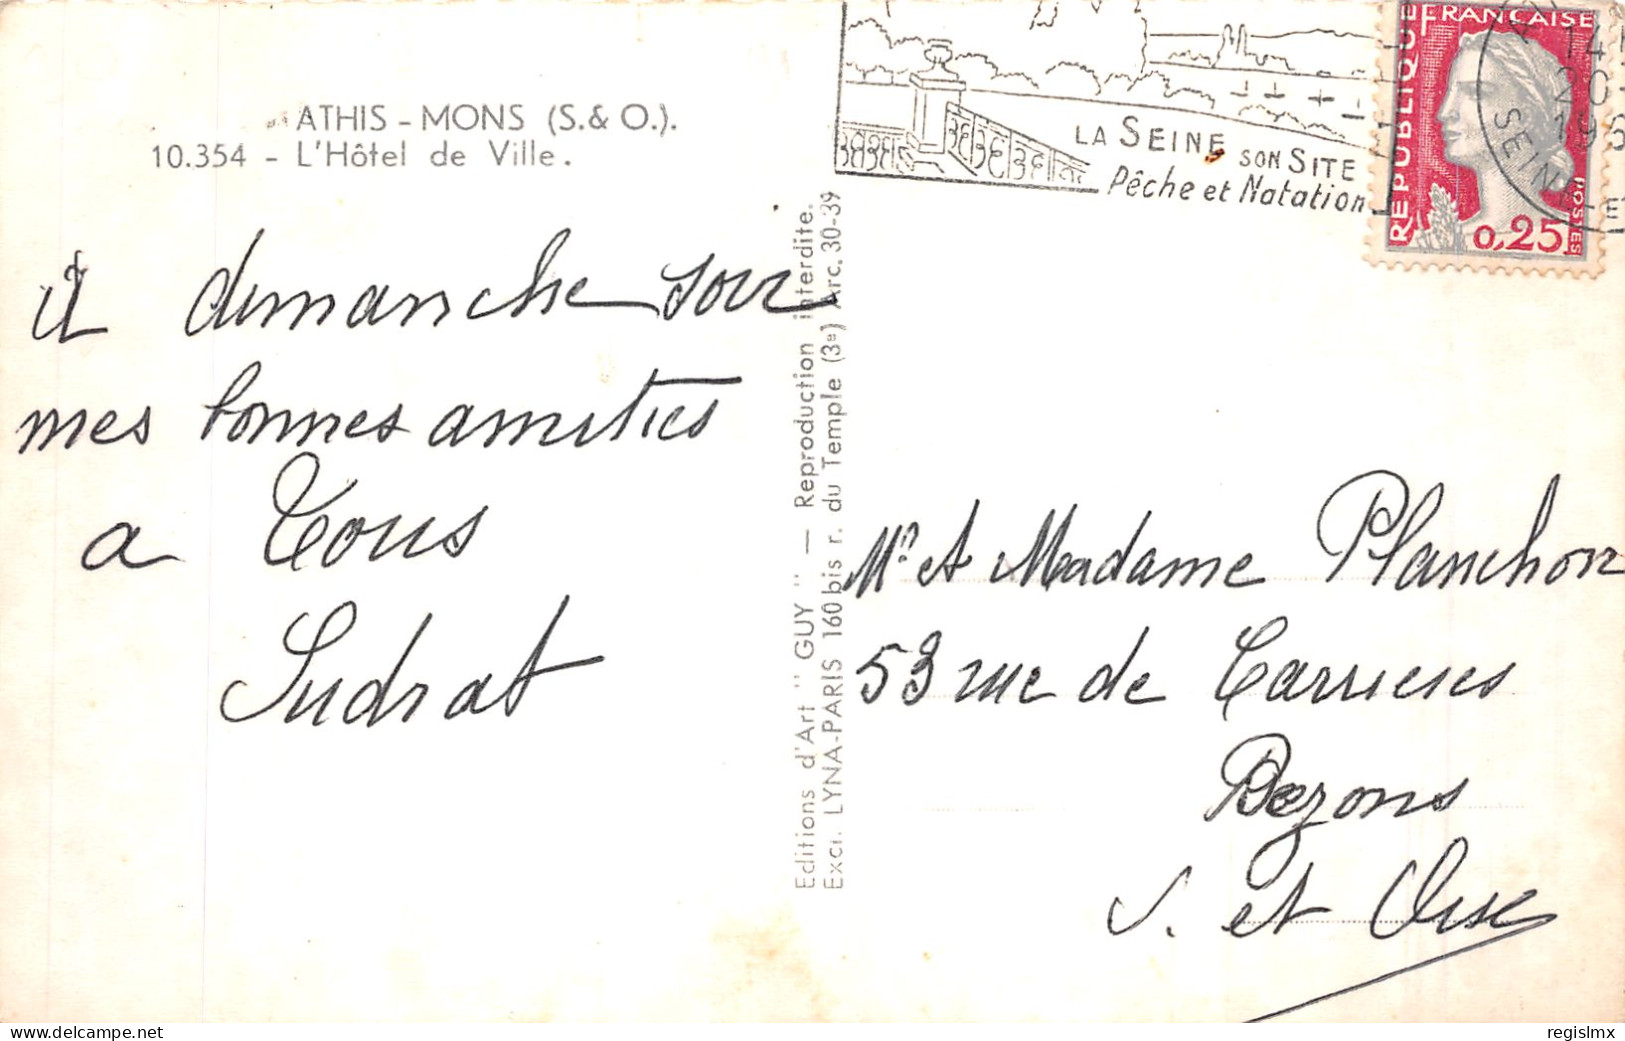 ATHIS - MONS (S. & O.).
10.354 - L'Hôtel de Ville.
à dimanche soir
mes bonnes amitiés
a Tous
Sudrat
Editions d'Art "GUY" — Reproduction interdite.
Excl. LYNA-PARIS 160 bis r. du Temple (3e) Arc. 30-39
LA SEINE SON SITE
Pêche et Natation
REPUBLIQUE FRANÇAISE
POSTES
0,25
14
20
196
SEINE-ET
Mr et Madame Planchon
53 rue de Carrieres
Bezons
S. et Oise
delcampe.net
regislmx